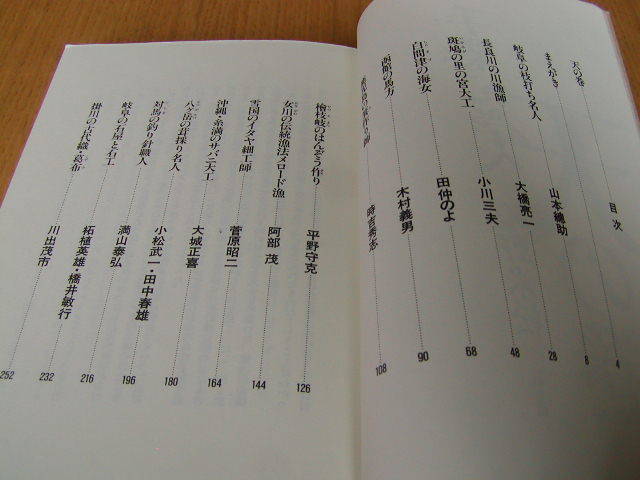 目次
天の巻
まえがき 4
岐阜の枝打ち名人 山本總助 8
長良川の川漁師 大橋亮一 28
斑鳩の里の宮大工 小川三夫 48
白間津の海女 田仲のよ 68
の馬方 木村義男 90
時吉秀志 108
檜枝岐のはんぞう作り 平野守克 126
女川の伝統漁法メロード漁 阿部 茂 144
雪国のイタヤ細工師 菅原昭二 164
沖縄・糸満のサバニ大工 大城正喜 180
八ヶ岳の茸採り名人 小松武一・田中春雄 196
対馬の釣り針職人 満山泰弘 216
岐阜の石屋と石工 柘植英雄・橋井敏行 232
掛川の古代織・葛布 川出茂市 252